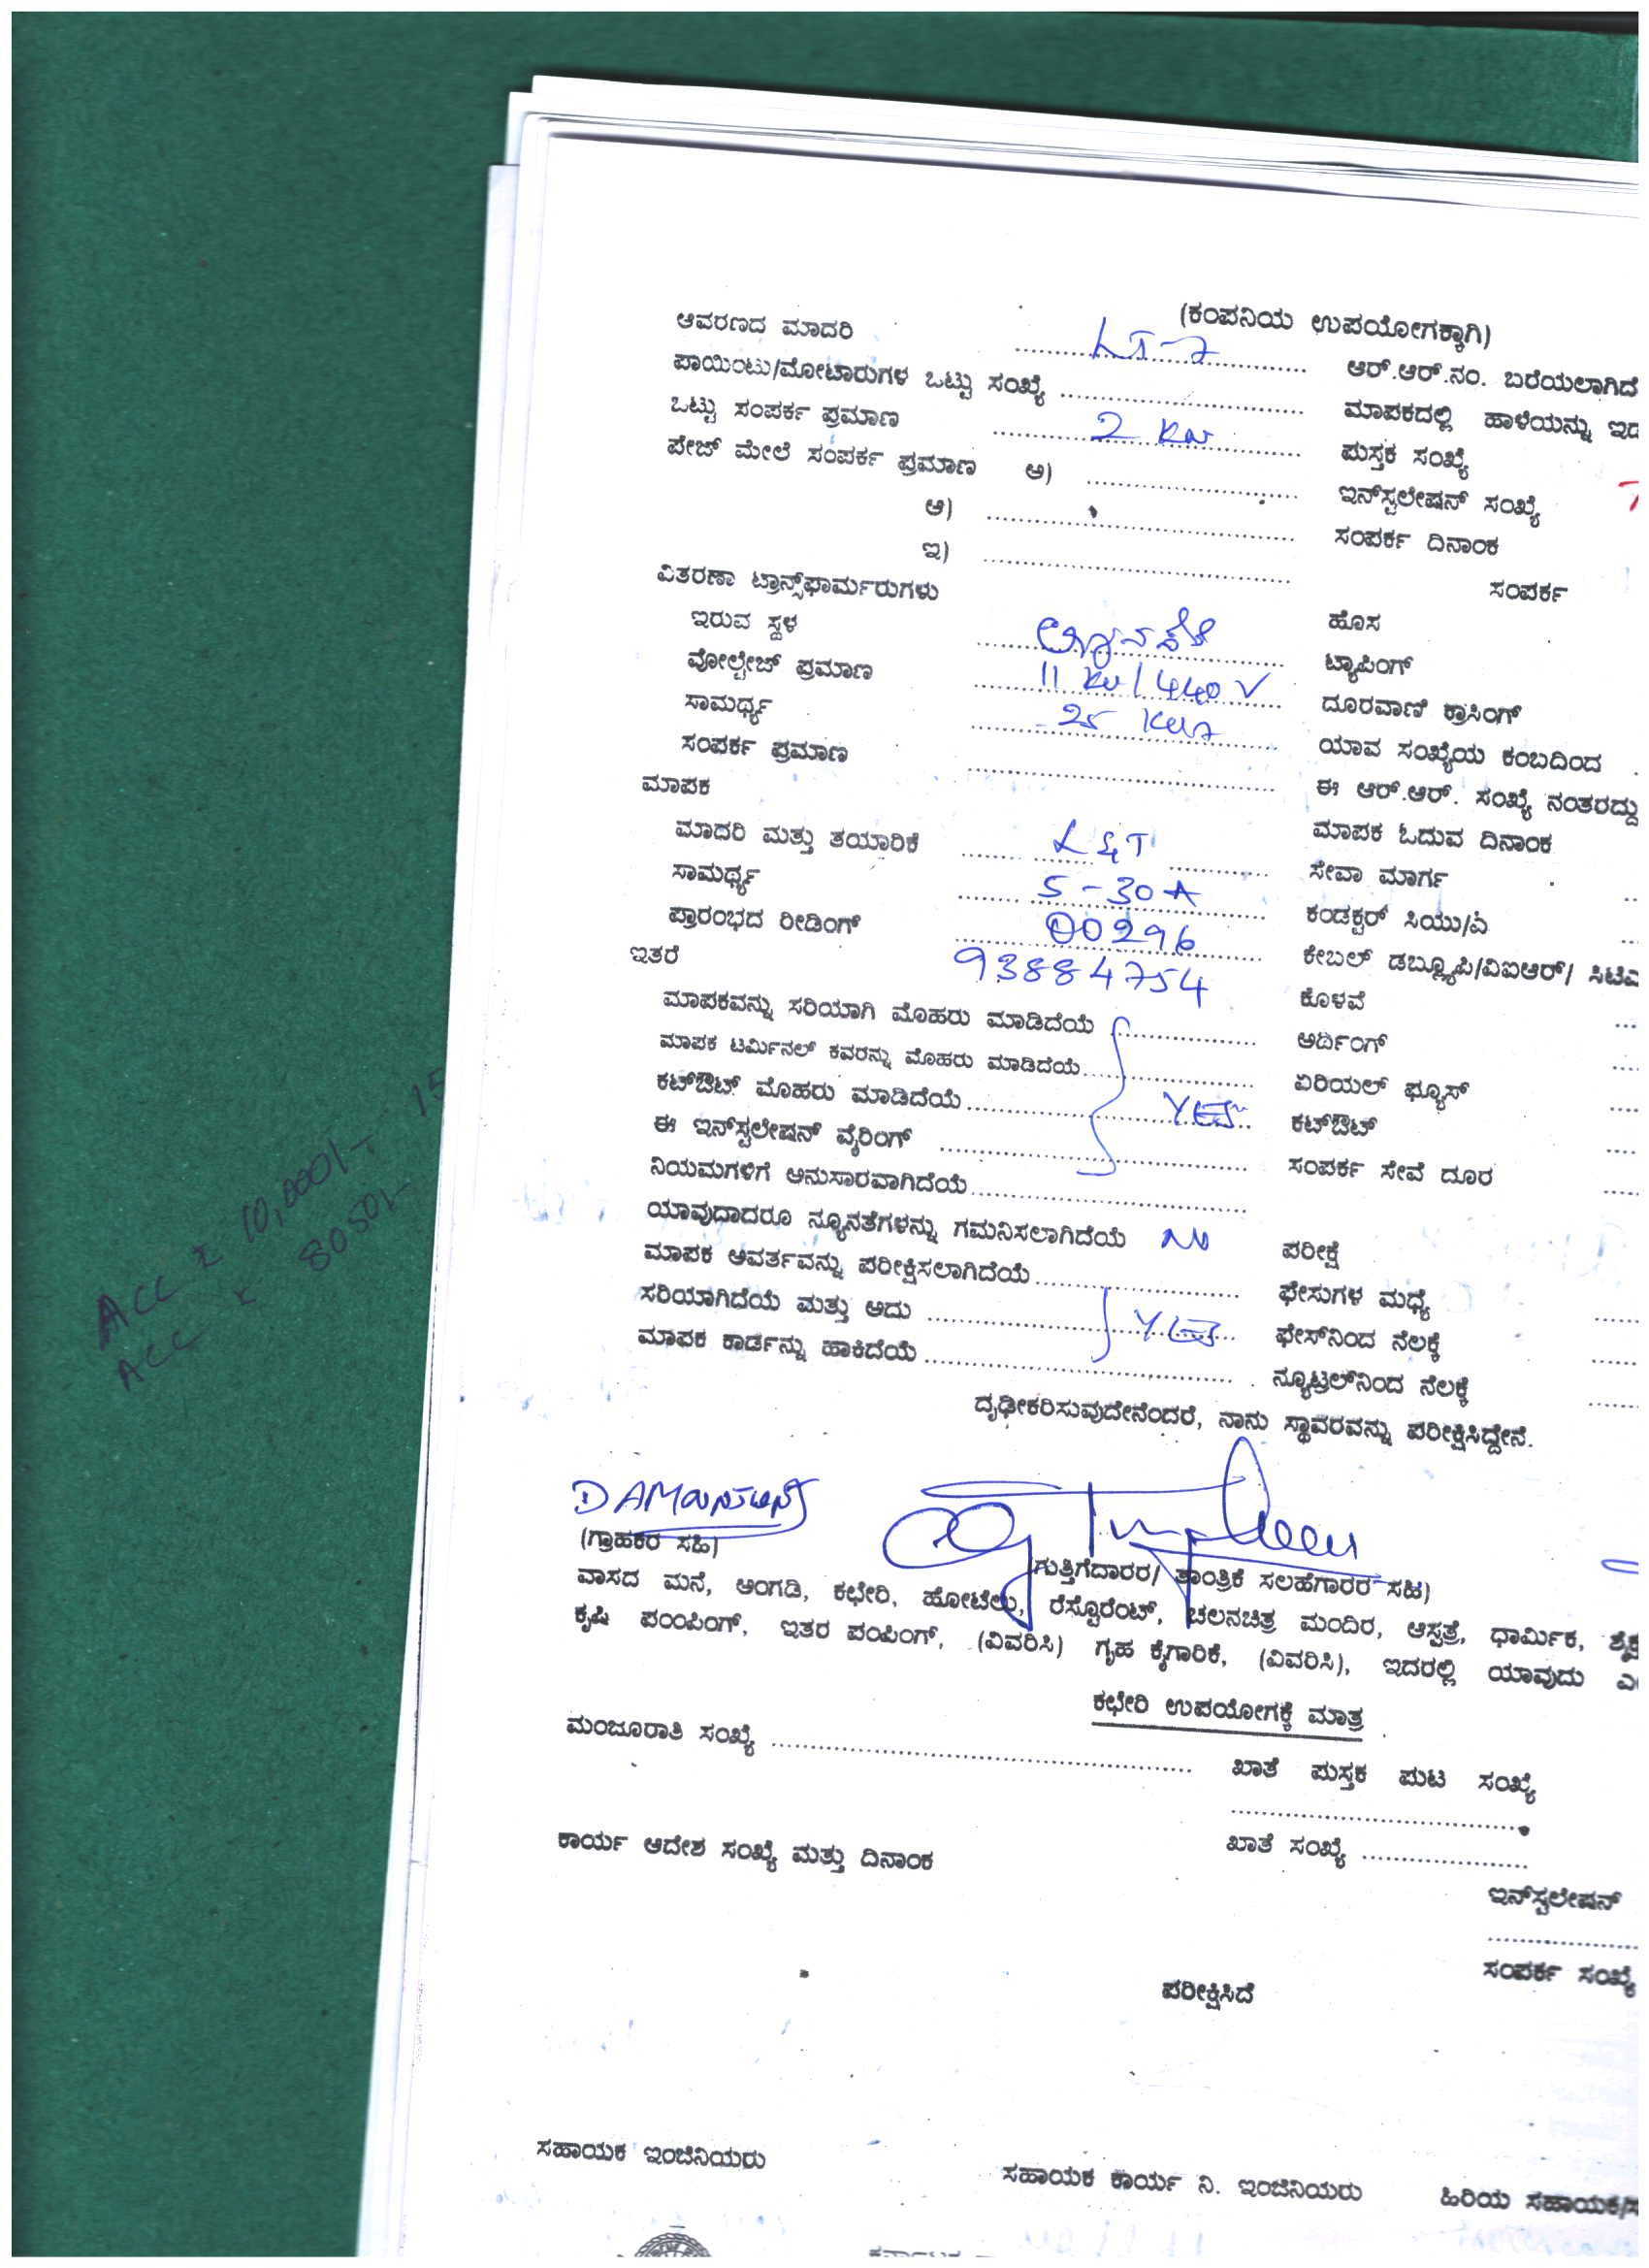 (ಕಂಪನಿಯ ಉಪಯೋಗಕ್ಕಾಗಿ)
ಆವರಣದ ಮಾದರಿ .......... LT-7 .......... ಆರ್.ಆರ್.ನಂ. ಬರೆಯಲಾಗಿದೆ
ಪಾಯಿಂಟು/ಮೋಟಾರುಗಳ ಒಟ್ಟು ಸಂಖ್ಯೆ .......... ಮಾಪಕದಲ್ಲಿ ಹಾಳೆಯನ್ನು
ಒಟ್ಟು ಸಂಪರ್ಕ ಪ್ರಮಾಣ .......... 2 KW .......... ಪುಸ್ತಕ ಸಂಖ್ಯೆ
ಪೇಜ್ ಮೇಲೆ ಸಂಪರ್ಕ ಪ್ರಮಾಣ ಅ) .......... ಇನ್‌ಸ್ಟಲೇಷನ್ ಸಂಖ್ಯೆ
ಆ) .......... ಸಂಪರ್ಕ ದಿನಾಂಕ
ಇ) .......... ಸಂಪರ್ಕ
ವಿತರಣಾ ಟ್ರಾನ್ಸ್‌ಫಾರ್ಮರುಗಳು ಹೊಸ
ಇರುವ ಸ್ಥಳ .......... ಟ್ಯಾಪಿಂಗ್
ವೋಲ್ಟೇಜ್ ಪ್ರಮಾಣ .......... 11 KV / 440 V ದೂರವಾಣಿ ಕ್ರಾಸಿಂಗ್
ಸಾಮರ್ಥ್ಯ .......... 25 KVA .......... ಯಾವ ಸಂಖ್ಯೆಯ ಕಂಬದಿಂದ
ಸಂಪರ್ಕ ಪ್ರಮಾಣ .......... ಈ ಆರ್.ಆರ್. ಸಂಖ್ಯೆ ನಂತರದ್ದು
ಮಾಪಕ ಮಾಪಕ ಓದುವ ದಿನಾಂಕ
ಮಾದರಿ ಮತ್ತು ತಯಾರಿಕೆ .......... L&T .......... ಸೇವಾ ಮಾರ್ಗ
ಸಾಮರ್ಥ್ಯ .......... 5-30A .......... ಕಂಡಕ್ಟರ್ ಸಿಯು/ಏ
ಪ್ರಾರಂಭದ ರೀಡಿಂಗ್ .......... 00296 .......... ಕೇಬಲ್ ಡಬ್ಲ್ಯೂಪಿ/ವಿಐಆರ್/
ಇತರೆ 93884754 ಕೊಳವೆ
ಮಾಪಕವನ್ನು ಸರಿಯಾಗಿ ಮೊಹರು ಮಾಡಿದೆಯೆ .......... ಅರ್ದಿಂಗ್
ಮಾಪಕ ಟರ್ಮಿನಲ್ ಕವರನ್ನು ಮೊಹರು ಮಾಡಿದೆಯೆ .......... ಏರಿಯಲ್ ಫ್ಯೂಸ್
ಕಟ್‌ಔಟ್ ಮೊಹರು ಮಾಡಿದೆಯೆ .......... YES ಕಟ್‌ಔಟ್
ಈ ಇನ್‌ಸ್ಟಲೇಷನ್ ವೈರಿಂಗ್ .......... ಸಂಪರ್ಕ ಸೇವೆ ದೂರ
ನಿಯಮಗಳಿಗೆ ಅನುಸಾರವಾಗಿದೆಯೆ ..........
ಯಾವುದಾದರೂ ನ್ಯೂನತೆಗಳನ್ನು ಗಮನಿಸಲಾಗಿದೆಯೆ NO ಪರೀಕ್ಷೆ
ಮಾಪಕ ಆವರ್ತವನ್ನು ಪರೀಕ್ಷಿಸಲಾಗಿದೆಯೆ .......... ಫೇಸುಗಳ ಮಧ್ಯೆ
ಸರಿಯಾಗಿದೆಯೆ ಮತ್ತು ಅದು .......... YES ಫೇಸ್‌ನಿಂದ ನೆಲಕ್ಕೆ
ಮಾಪಕ ಕಾರ್ಡನ್ನು ಹಾಕಿದೆಯೆ .......... ನ್ಯೂಟ್ರಲ್‌ನಿಂದ ನೆಲಕ್ಕೆ
ದೃಢೀಕರಿಸುವುದೇನೆಂದರೆ, ನಾನು ಸ್ಥಾವರವನ್ನು ಪರೀಕ್ಷಿಸಿದ್ದೇನೆ.
(ಗ್ರಾಹಕರ ಸಹಿ) (ಗುತ್ತಿಗೆದಾರರ/ ತಾಂತ್ರಿಕೆ ಸಲಹೆಗಾರರ ಸಹಿ)
ವಾಸದ ಮನೆ, ಅಂಗಡಿ, ಕಛೇರಿ, ಹೋಟೆಲು, ರೆಸ್ಟೊರೆಂಟ್, ಚಲನಚಿತ್ರ ಮಂದಿರ, ಆಸ್ಪತ್ರೆ, ಧಾರ್ಮಿಕ,
ಕೃಷಿ ಪಂಪಿಂಗ್, ಇತರ ಪಂಪಿಂಗ್, (ವಿವರಿಸಿ) ಗೃಹ ಕೈಗಾರಿಕೆ, (ವಿವರಿಸಿ), ಇದರಲ್ಲಿ ಯಾವುದು
ಕಛೇರಿ ಉಪಯೋಗಕ್ಕೆ ಮಾತ್ರ
ಮಂಜೂರಾತಿ ಸಂಖ್ಯೆ .......... ಖಾತೆ ಪುಸ್ತಕ ಪುಟ ಸಂಖ್ಯೆ
ಕಾರ್ಯ ಆದೇಶ ಸಂಖ್ಯೆ ಮತ್ತು ದಿನಾಂಕ ಖಾತೆ ಸಂಖ್ಯೆ ..........
ಇನ್‌ಸ್ಟಲೇಷನ್
ಸಂಪರ್ಕ ಸಂಖ್ಯೆ
ಪರೀಕ್ಷಿಸಿದೆ
ಸಹಾಯಕ ಇಂಜಿನಿಯರು ಸಹಾಯಕ ಕಾರ್ಯ ನಿ. ಇಂಜಿನಿಯರು ಹಿರಿಯ ಸಹಾಯಕ/
ACC 10,000/-
ACC 8050/-